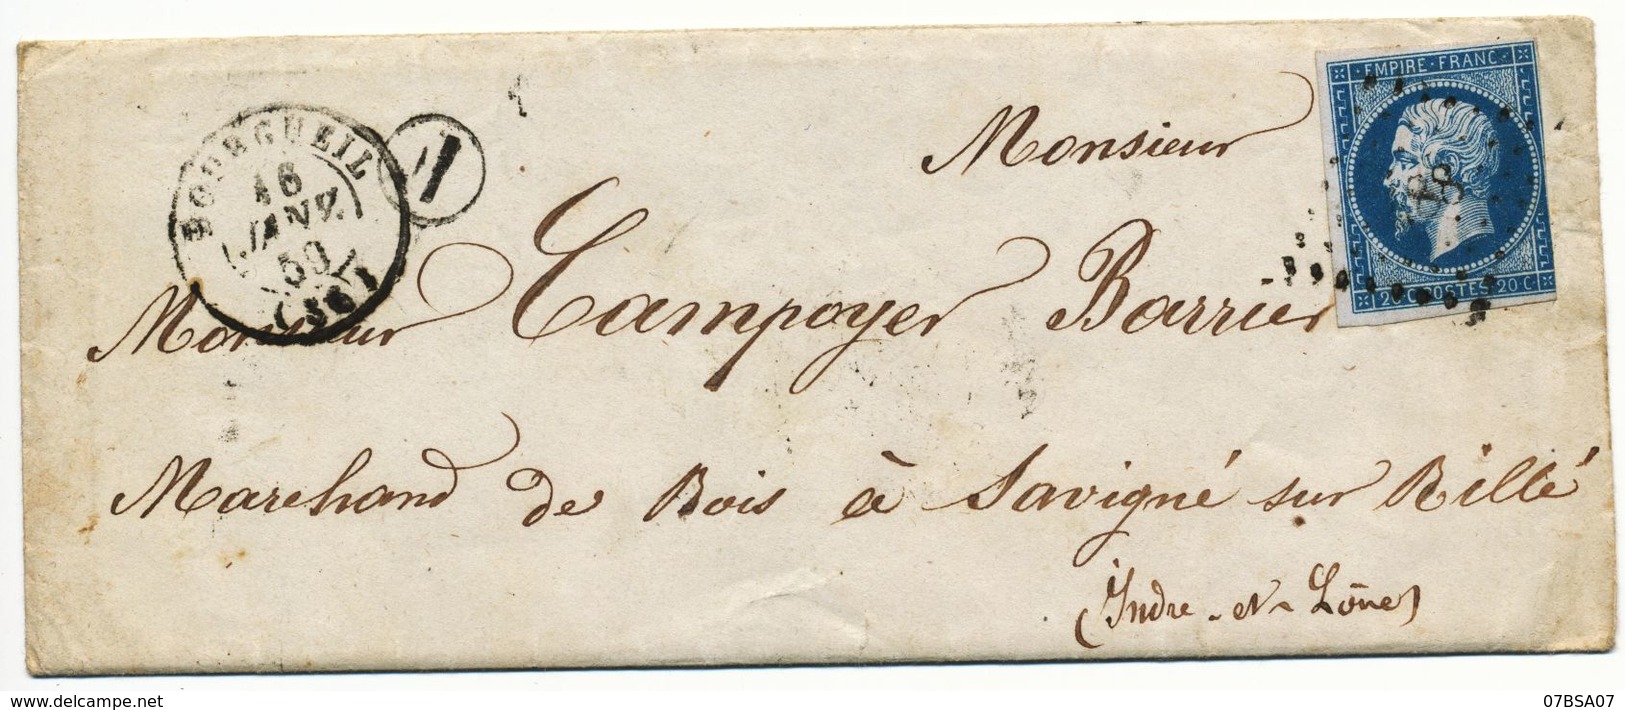 EMPIRE · FRANC ·
20 C · POSTES · 20 C
BOURGUEIL
16
JANV.
(36)
Monsieur
Monsieur Campoyer Barrier
Marchand de Bois à Savigné sur Rillé
(Indre-et-Loire)
delcampe.net
07BSA07